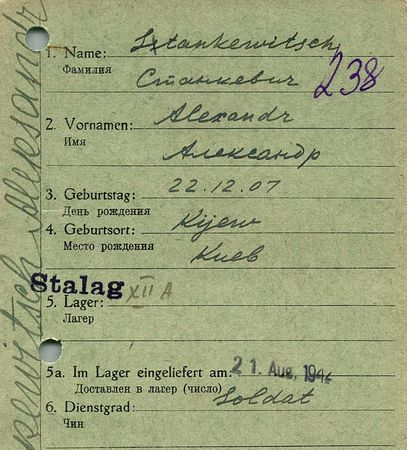 1. Name: Sztankewitsch
Фамилия Станкевич
238
2. Vornamen: Alexandr
Имя Александр
3. Geburtstag: 22.12.07
День рождения
4. Geburtsort: Kijew
Место рождения Киев
Stalag XII A
5. Lager:
Лагерь
5a. Im Lager eingeliefert am: 21. Aug. 194
Доставлен в лагерь (число)
6. Dienstgrad: Soldat
Чин